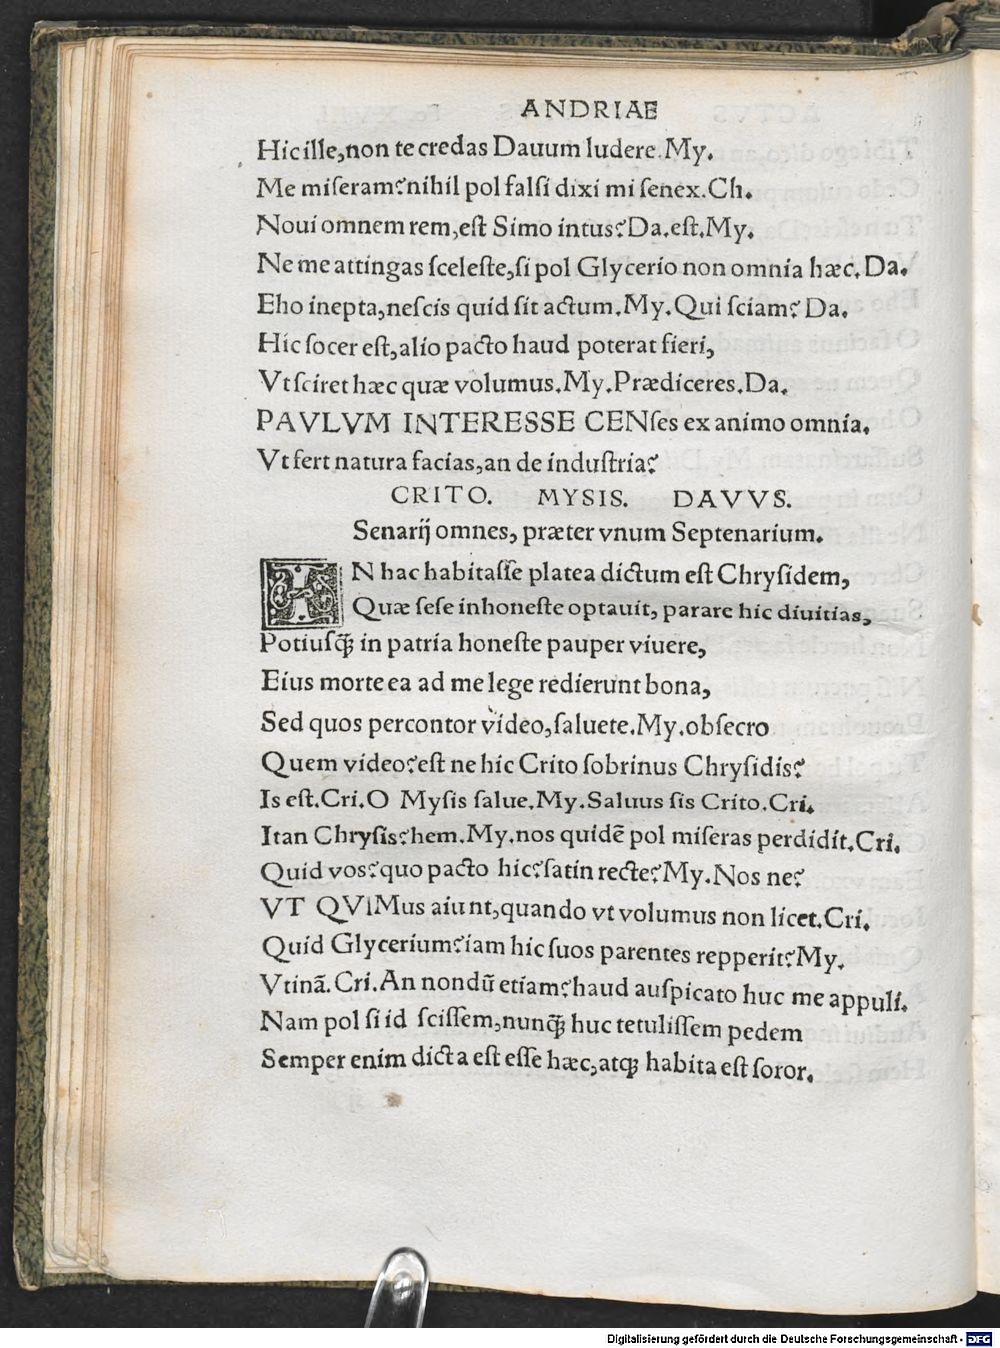 ANDRIAE
Hic ille, non te credas Dauum ludere. My.
Me miseram? nihil pol falsi dixi mi senex. Ch.
Noui omnem rem, est Simo intus? Da. est. My.
Ne me attingas sceleste, si pol Glycerio non omnia hæc. Da.
Eho inepta, nescis quid sit actum. My. Qui sciam? Da.
Hic socer est, alio pacto haud poterat fieri,
Vt sciret hæc quæ volumus. My. Prædiceres. Da.
PAVLVM INTERESSE CENses ex animo omnia,
Vt fert natura facias, an de industria?
CRITO. MYSIS. DAVVS.
Senarij omnes, præter vnum Septenarium.
IN hac habitasse platea dictum est Chrysidem,
Quæ sese inhoneste optauit, parare hic diuitias,
Potiusq̃ in patria honeste pauper viuere,
Eius morte ea ad me lege redierunt bona,
Sed quos percontor video, saluete. My. obsecro
Quem video? est ne hic Crito sobrinus Chrysidis?
Is est. Cri. O Mysis salue. My. Saluus sis Crito. Cri.
Itan Chrysis? hem. My. nos quidẽ pol miseras perdidit. Cri.
Quid vos? quo pacto hic? satin recte? My. Nos ne?
VT QViMus aiunt, quando vt volumus non licet. Cri.
Quid Glycerium? iam hic suos parentes repperit? My.
Vtinã. Cri. An nondũ etiam? haud auspicato huc me appuli.
Nam pol si id scissem, nunq̃ huc tetulissem pedem
Semper enim dicta est esse hæc, atq; habita est soror.
Digitalisierung gefördert durch die Deutsche Forschungsgemeinschaft - DFG